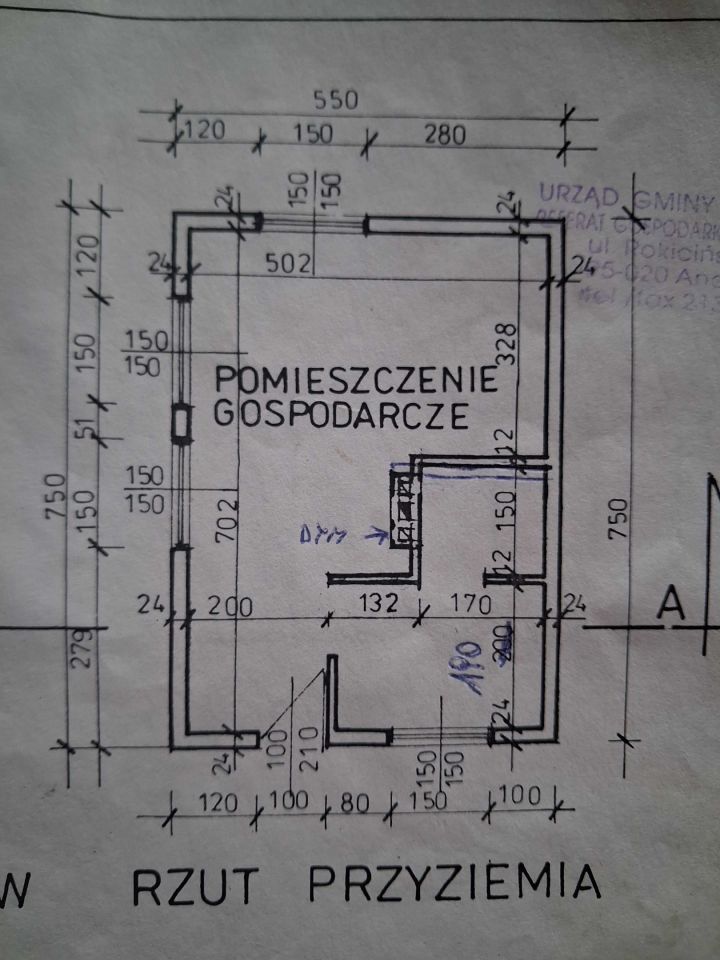 550
120 150 280
24 150 150 24
URZĄD GMINY
REFERAT GOSPODARK
ul. Rokiciń
95-020 And
120
24 502 24
150
150
150
328
POMIESZCZENIE
GOSPODARCZE
51
12
150
150
750
150
702
150
750
DYM
12
24 200 132 170 24
A
279
200
190
24
24
100
210
150
150
120 100 80 150 100
W RZUT PRZYZIEMIA